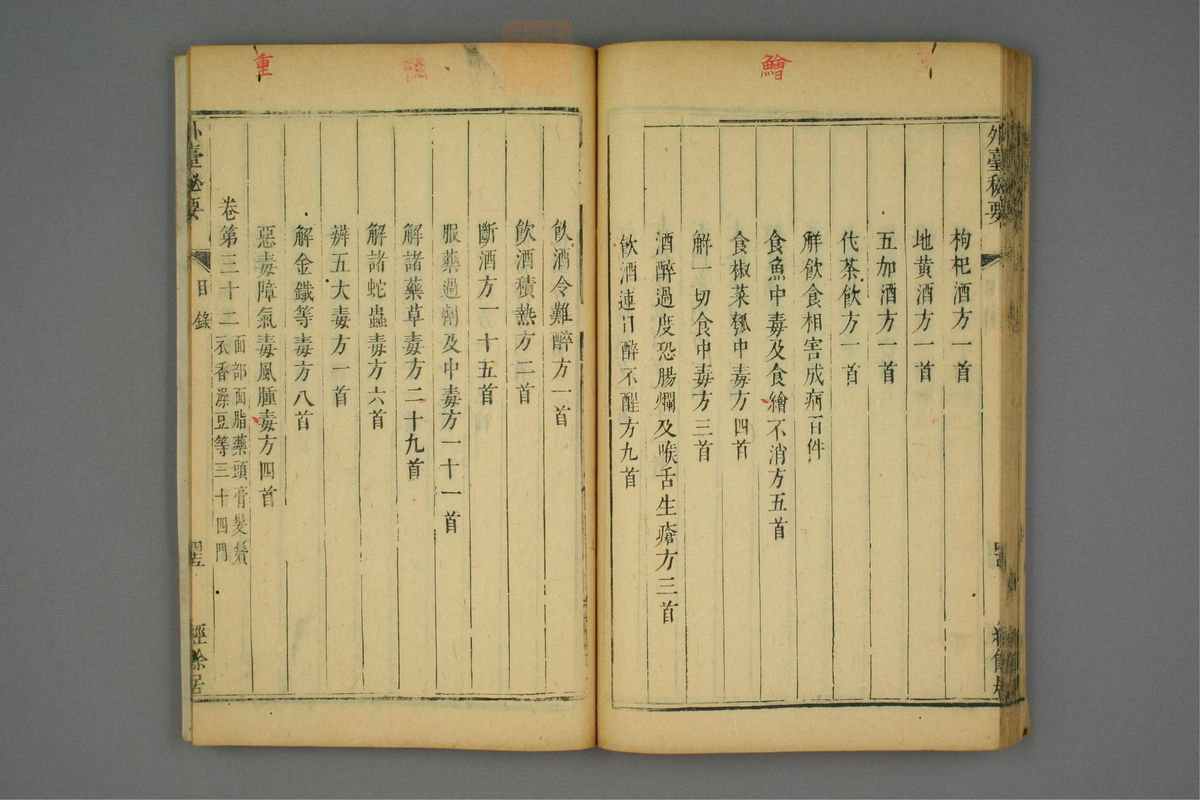 鱠
外臺秘要
枸杞酒方一首
地黄酒方一首
五加酒方一首
代茶飲方一首
解飲食相害成病百件
食魚中毒及食繪不消方五首
食椒菜瓠中毒方四首
解一切食中毒方三首
酒醉過度恐腸爛及喉舌生瘡方三首
飲酒連日醉不醒方九首
重
飲酒令難醉方一首
飲酒積熱方二首
斷酒方一十五首
服藥過劑及中毒方一十一首
解諸藥草毒方二十九首
解諸蛇蟲毒方六首
辨五大毒方一首
解金鐵等毒方八首
惡毒障氣毒風腫毒方四首
卷第三十二
面部面脂藥頭膏髮鬢
衣香澡豆等三十四門
外臺秘要
目錄
經餘居